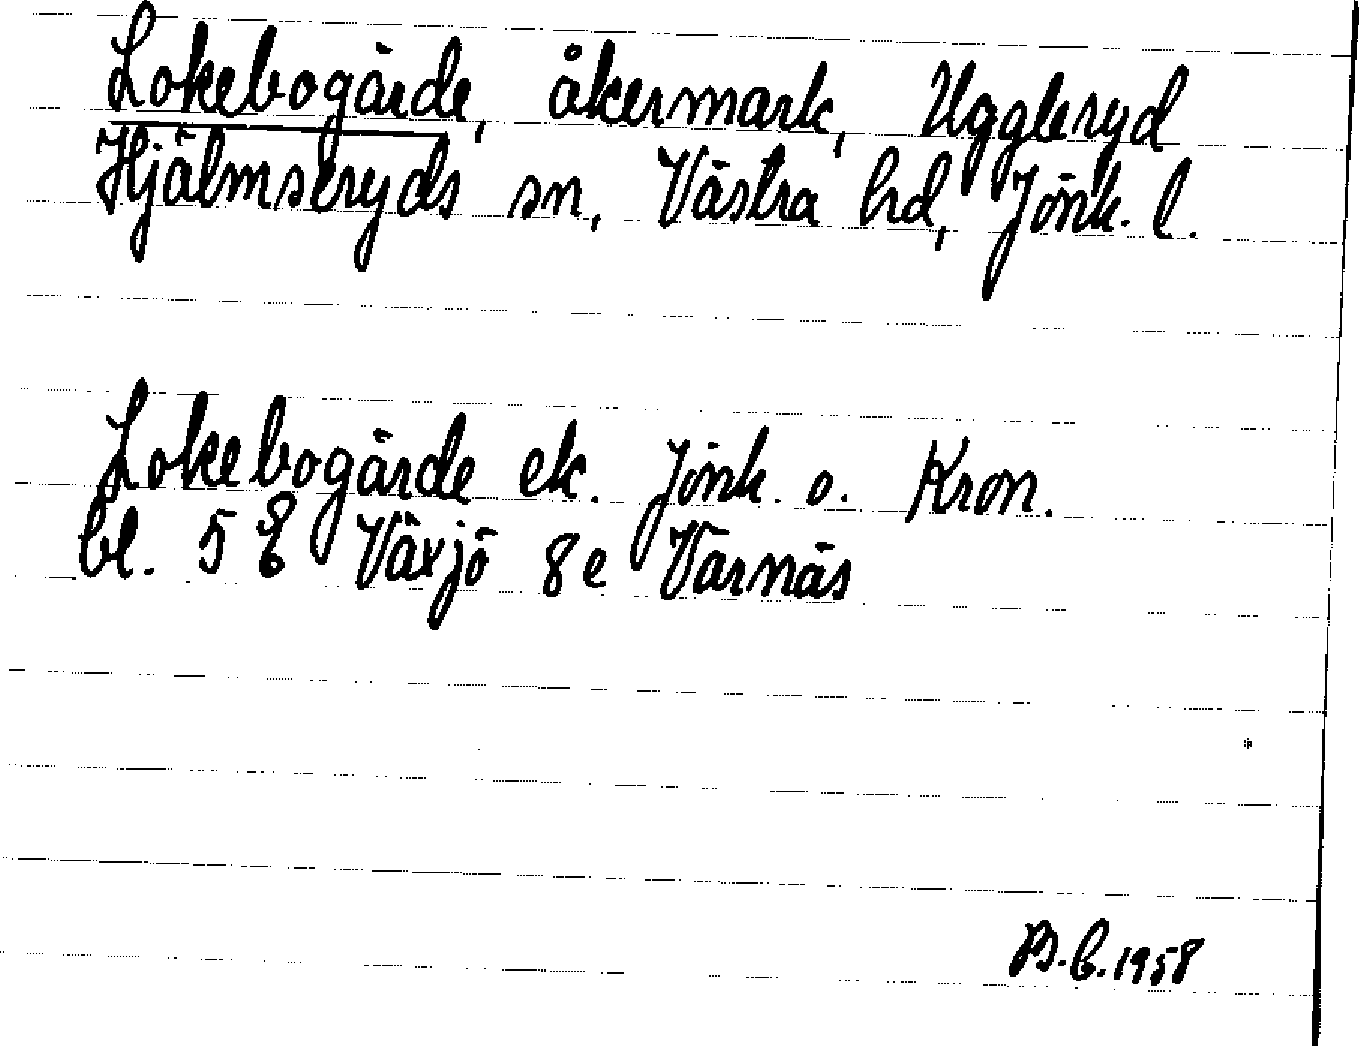 Lokebogärde, åkermark, Uggleryd
Hjälmseryds sn, Västra hd, Jönk. l.
Lokebogärde ek. Jönk. o. Kron.
bl. 5 E Växjö 8e Värnäs
1958